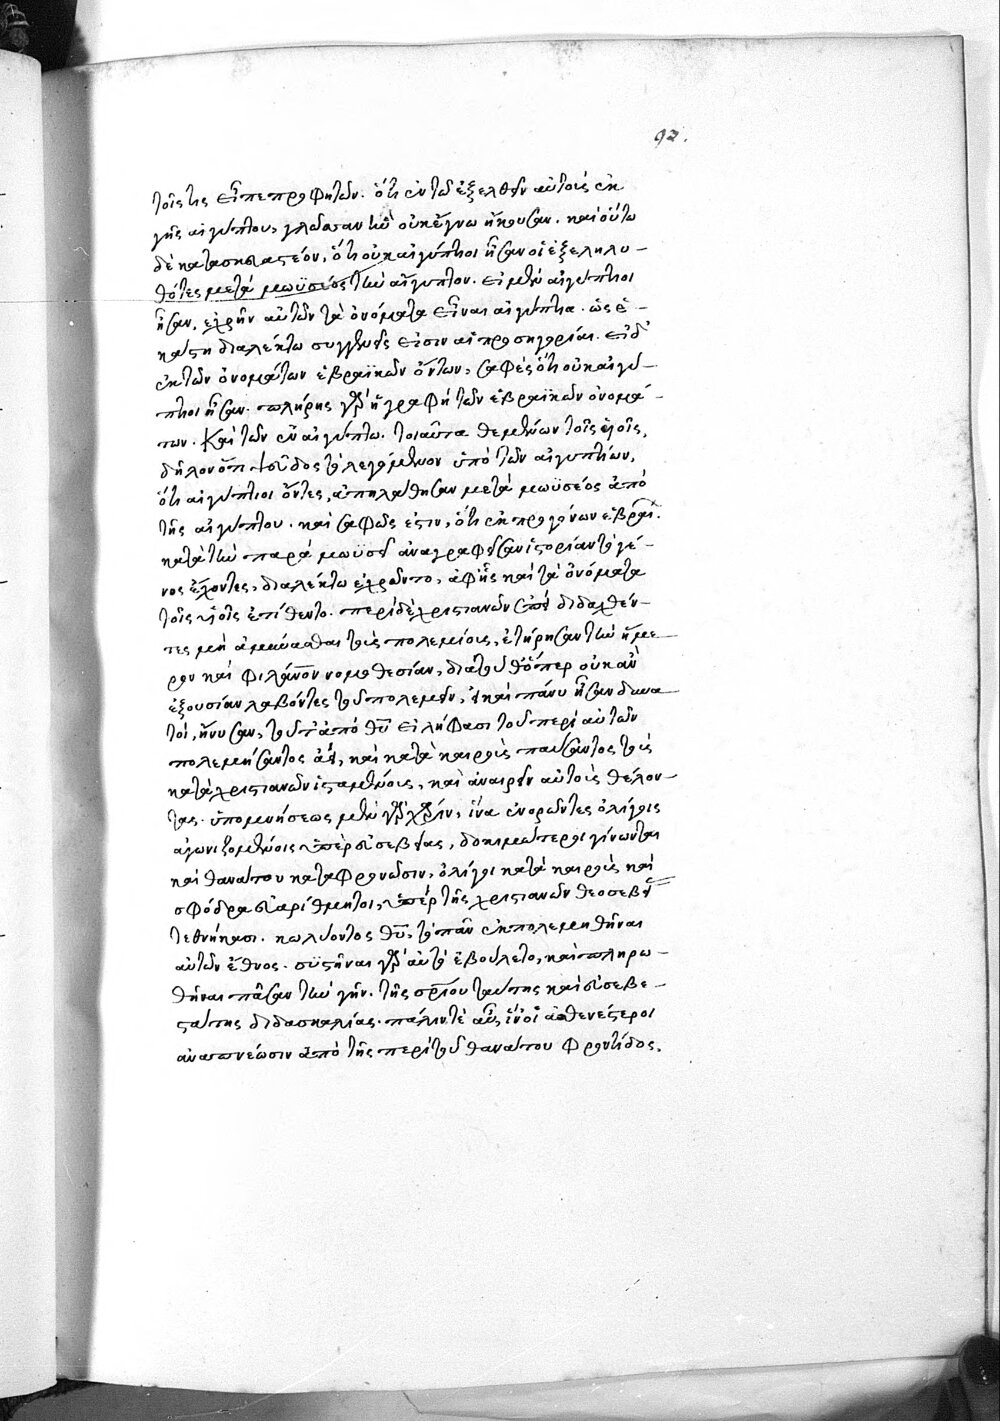 92.
τοῖς τῆς εἶπε προφητῶν. ὅτι ἐν τῶ ἐξελθεῖν αὐτοὺς ἐκ
γῆς αἰγύπτου, γλῶσσαν ἣν οὐκ ἔγνω ἤκουσαν. καὶ οὕτω
δὲ κατασκευαστέον, ὅτι οὐκ αἰγύπτιοι ἦσαν οἱ ἐξεληλυ-
θότες μετὰ μωϋσέος τὴν αἴγυπτον. εἰ μὲν αἰγύπτιοι
ἦσαν, ἐχρῆν αὐτῶν τὰ ὀνόματα εἶναι αἰγύπτια. ὡς ἑ-
κάστη διαλέκτω συγγενεῖς εἰσιν αἱ προσηγορίαι. εἰ δ'
ἐκ τῶν ὀνομάτων ἑβραϊκῶν ὄντων, σαφὲς ὅτι οὐκ αἰγύ-
πτιοι ἦσαν. πλήρης γὰρ ἡ γραφὴ τῶν ἑβραϊκῶν ὀνομά-
των. καὶ τῶν ἐν αἰγύπτω. τοιαῦτα θεμένων τοῖς υἱοῖς,
δῆλον ὅτι ψεῦδος τὸ λεγόμενον ὑπὸ τῶν αἰγυπτίων,
ὅτι αἰγύπτιοι ὄντες, ἀπηλάθησαν μετὰ μωϋσέος ἀπὸ
τῆς αἰγύπτου. καὶ σαφῶς ἐστιν, ὅτι ἐκ προγόνων ἑβραί.
κατὰ τὴν παρὰ μωϋσεῖ ἀναγραφεῖσαν ἱστορίαν τὸ γέ-
νος ἔχοντες, διαλέκτω ἐχρῶντο, ἀφ' ἧς καὶ τὰ ὀνόματα
τοῖς υἱοῖς ἐπίθεντο. περὶ δὲ χριστιανῶν διδαχθέν-
τες μὴ ἀμύνασθαι τοὺς πολεμίους, ἐτήρησαν τὴν ἥμε-
ρον καὶ φιλάνον νομοθεσίαν, διὰ τοῦθ' ὅπερ οὐκ ἂν
ἐξουσίαν λαβόντες τοῦ πολεμεῖν, εἰ καὶ πάνυ ἦσαν δυνα
τοὶ, ἤνυσαν, τοῦτ' ἀπὸ θυ εἰλήφασι τοῦ περὶ αὐτῶν
πολεμήσαντος ἀεί, καὶ κατὰ καιροὺς παύσαντος τοὺς
κατὰ χριστιανῶν ἱσταμένους, καὶ ἀναιρεῖν αὐτοὺς θέλον-
τας. ὑπομνήσεως μὲν γὰρ χάριν, ἵνα ἐνορῶντες ὀλίγοις
ἀγωνιζομένοις ὑπὲρ εὐσεβείας, δοκιμώτεροι γίνωνται
καὶ θανάτου καταφρονῶσιν, ὀλίγοι κατὰ καιροὺς καὶ
σφόδρα εὐαρίθμητοι, ὑπὲρ τῆς χριστιανῶν θεοσεβεί
τεθνήκασι. κωλύοντος θυ, τὸ πᾶν ἐκπολεμηθῆναι
αὐτῶν ἔθνος. συστῆναι γὰρ αὐτὸ ἐβούλετο, καὶ πληρω-
θῆναι πᾶσαν τὴν γῆν. τῆς σρίου ταύτης καὶ εὐσεβε-
στάτης διδασκαλίας. πάλιν τὲ αὖ, ἵν' οἱ ἀσθενέστεροι
ἀναπνέωσιν ἀπὸ τῆς περὶ τοῦ θανάτου φροντίδος.